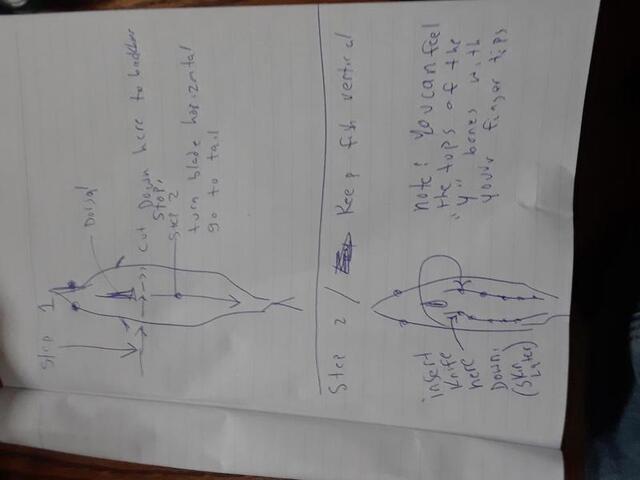 Step 1
Dorsal
Cut Down here to backbone
Stop,
Step 2
turn blade horizontal
go to tail
Step 2 / Keep fish vertical
note: you can feel
the tops of the
"Y" bones with
your finger tips
insert
Knife
here
Down,
(Skin
Later)